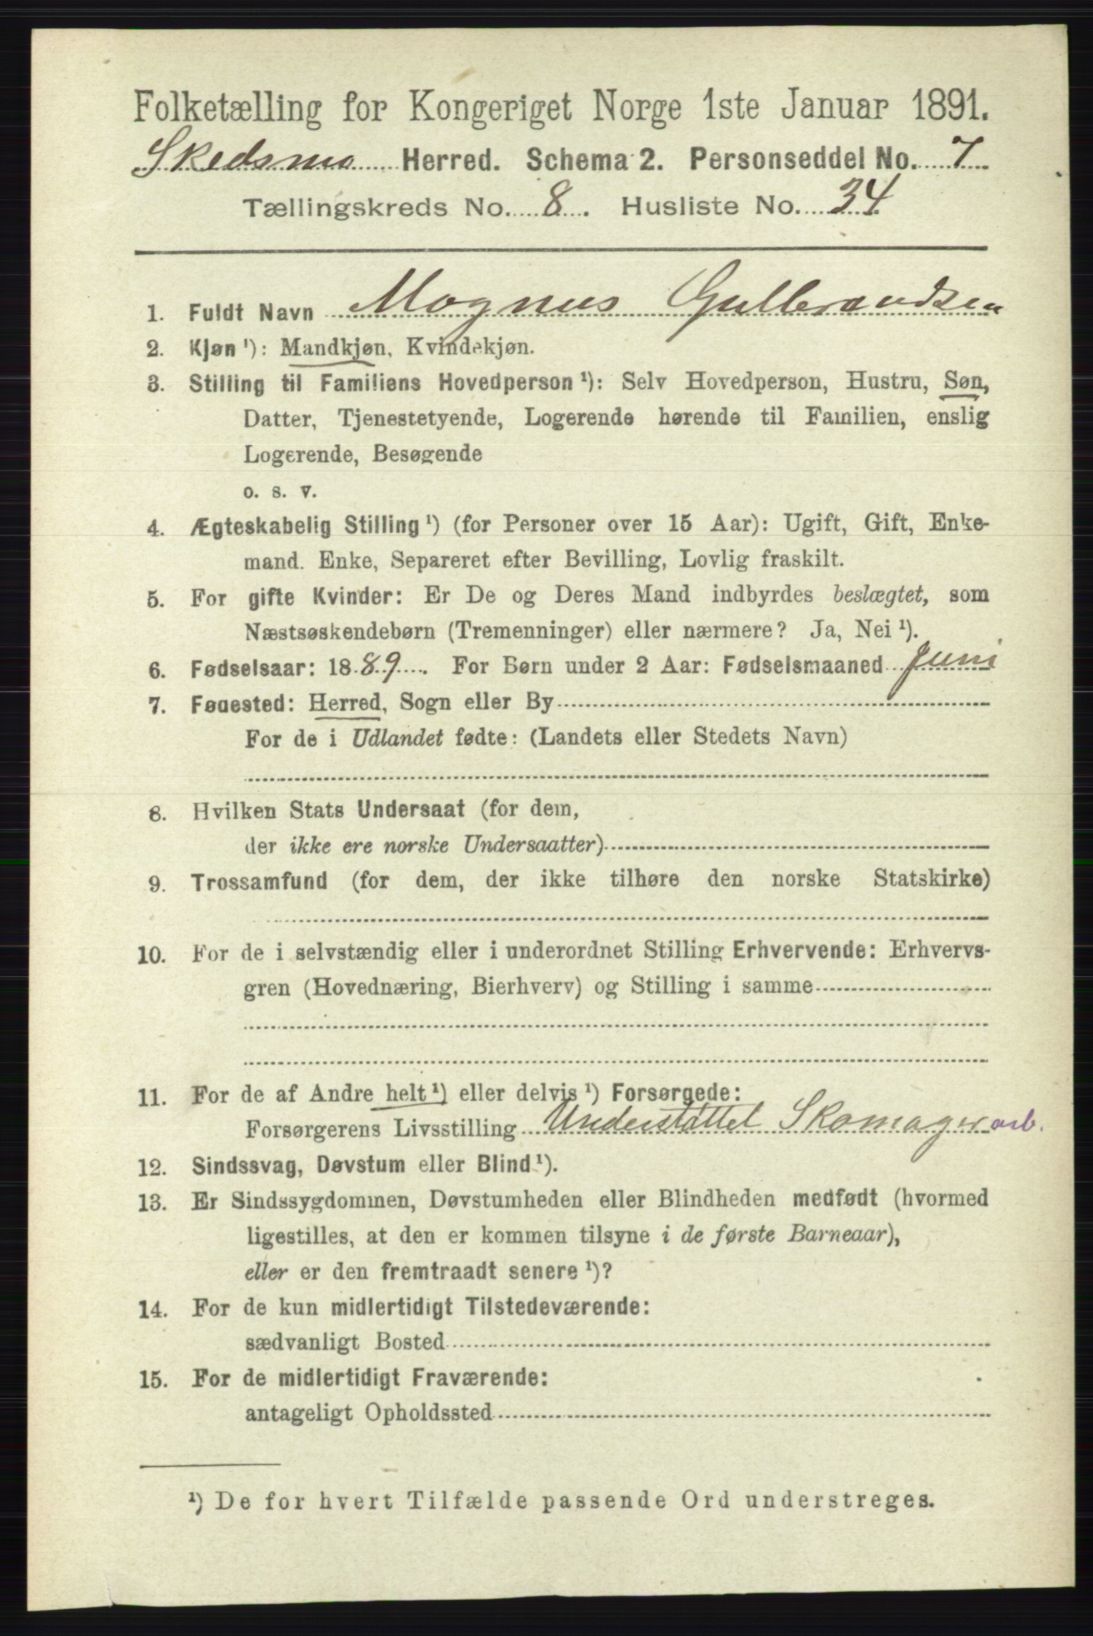 Folketælling for Kongeriget Norge 1ste Januar 1891.
Skedsmo Herred. Schema 2. Personseddel No. 7
Tællingskreds No. 8. Husliste No. 34
1. Fuldt Navn Magnus Gulbrandsen
2. Kjøn ¹): Mandkjøn, Kvindekjøn.
3. Stilling til Familiens Hovedperson ¹): Selv Hovedperson, Hustru, Søn,
Datter, Tjenestetyende, Logerende hørende til Familien, enslig
Logerende, Besøgende
o. s. v.
4. Ægteskabelig Stilling ¹) (for Personer over 15 Aar): Ugift, Gift, Enke-
mand. Enke, Separeret efter Bevilling, Lovlig fraskilt.
5. For gifte Kvinder: Er De og Deres Mand indbyrdes beslægtet, som
Næstsøskendebørn (Tremenninger) eller nærmere? Ja, Nei ¹).
6. Fødselsaar: 1889. For Børn under 2 Aar: Fødselsmaaned Juni
7. Fødested: Herred, Sogn eller By
For de i Udlandet fødte: (Landets eller Stedets Navn)
8. Hvilken Stats Undersaat (for dem,
der ikke ere norske Undersaatter)
9. Trossamfund (for dem, der ikke tilhøre den norske Statskirke)
10. For de i selvstændig eller i underordnet Stilling Erhvervende: Erhvervs-
gren (Hovednæring, Bierhverv) og Stilling i samme
11. For de af Andre helt ¹) eller delvis ¹) Forsørgede:
Forsørgerens Livsstilling Understøttet Skomager arb.
12. Sindssvag, Døvstum eller Blind ¹).
13. Er Sindssygdommen, Døvstumheden eller Blindheden medfødt (hvormed
ligestilles, at den er kommen tilsyne i de første Barneaar),
eller er den fremtraadt senere ¹)?
14. For de kun midlertidigt Tilstedeværende:
sædvanligt Bosted
15. For de midlertidigt Fraværende:
antageligt Opholdssted
¹) De for hvert Tilfælde passende Ord understreges.